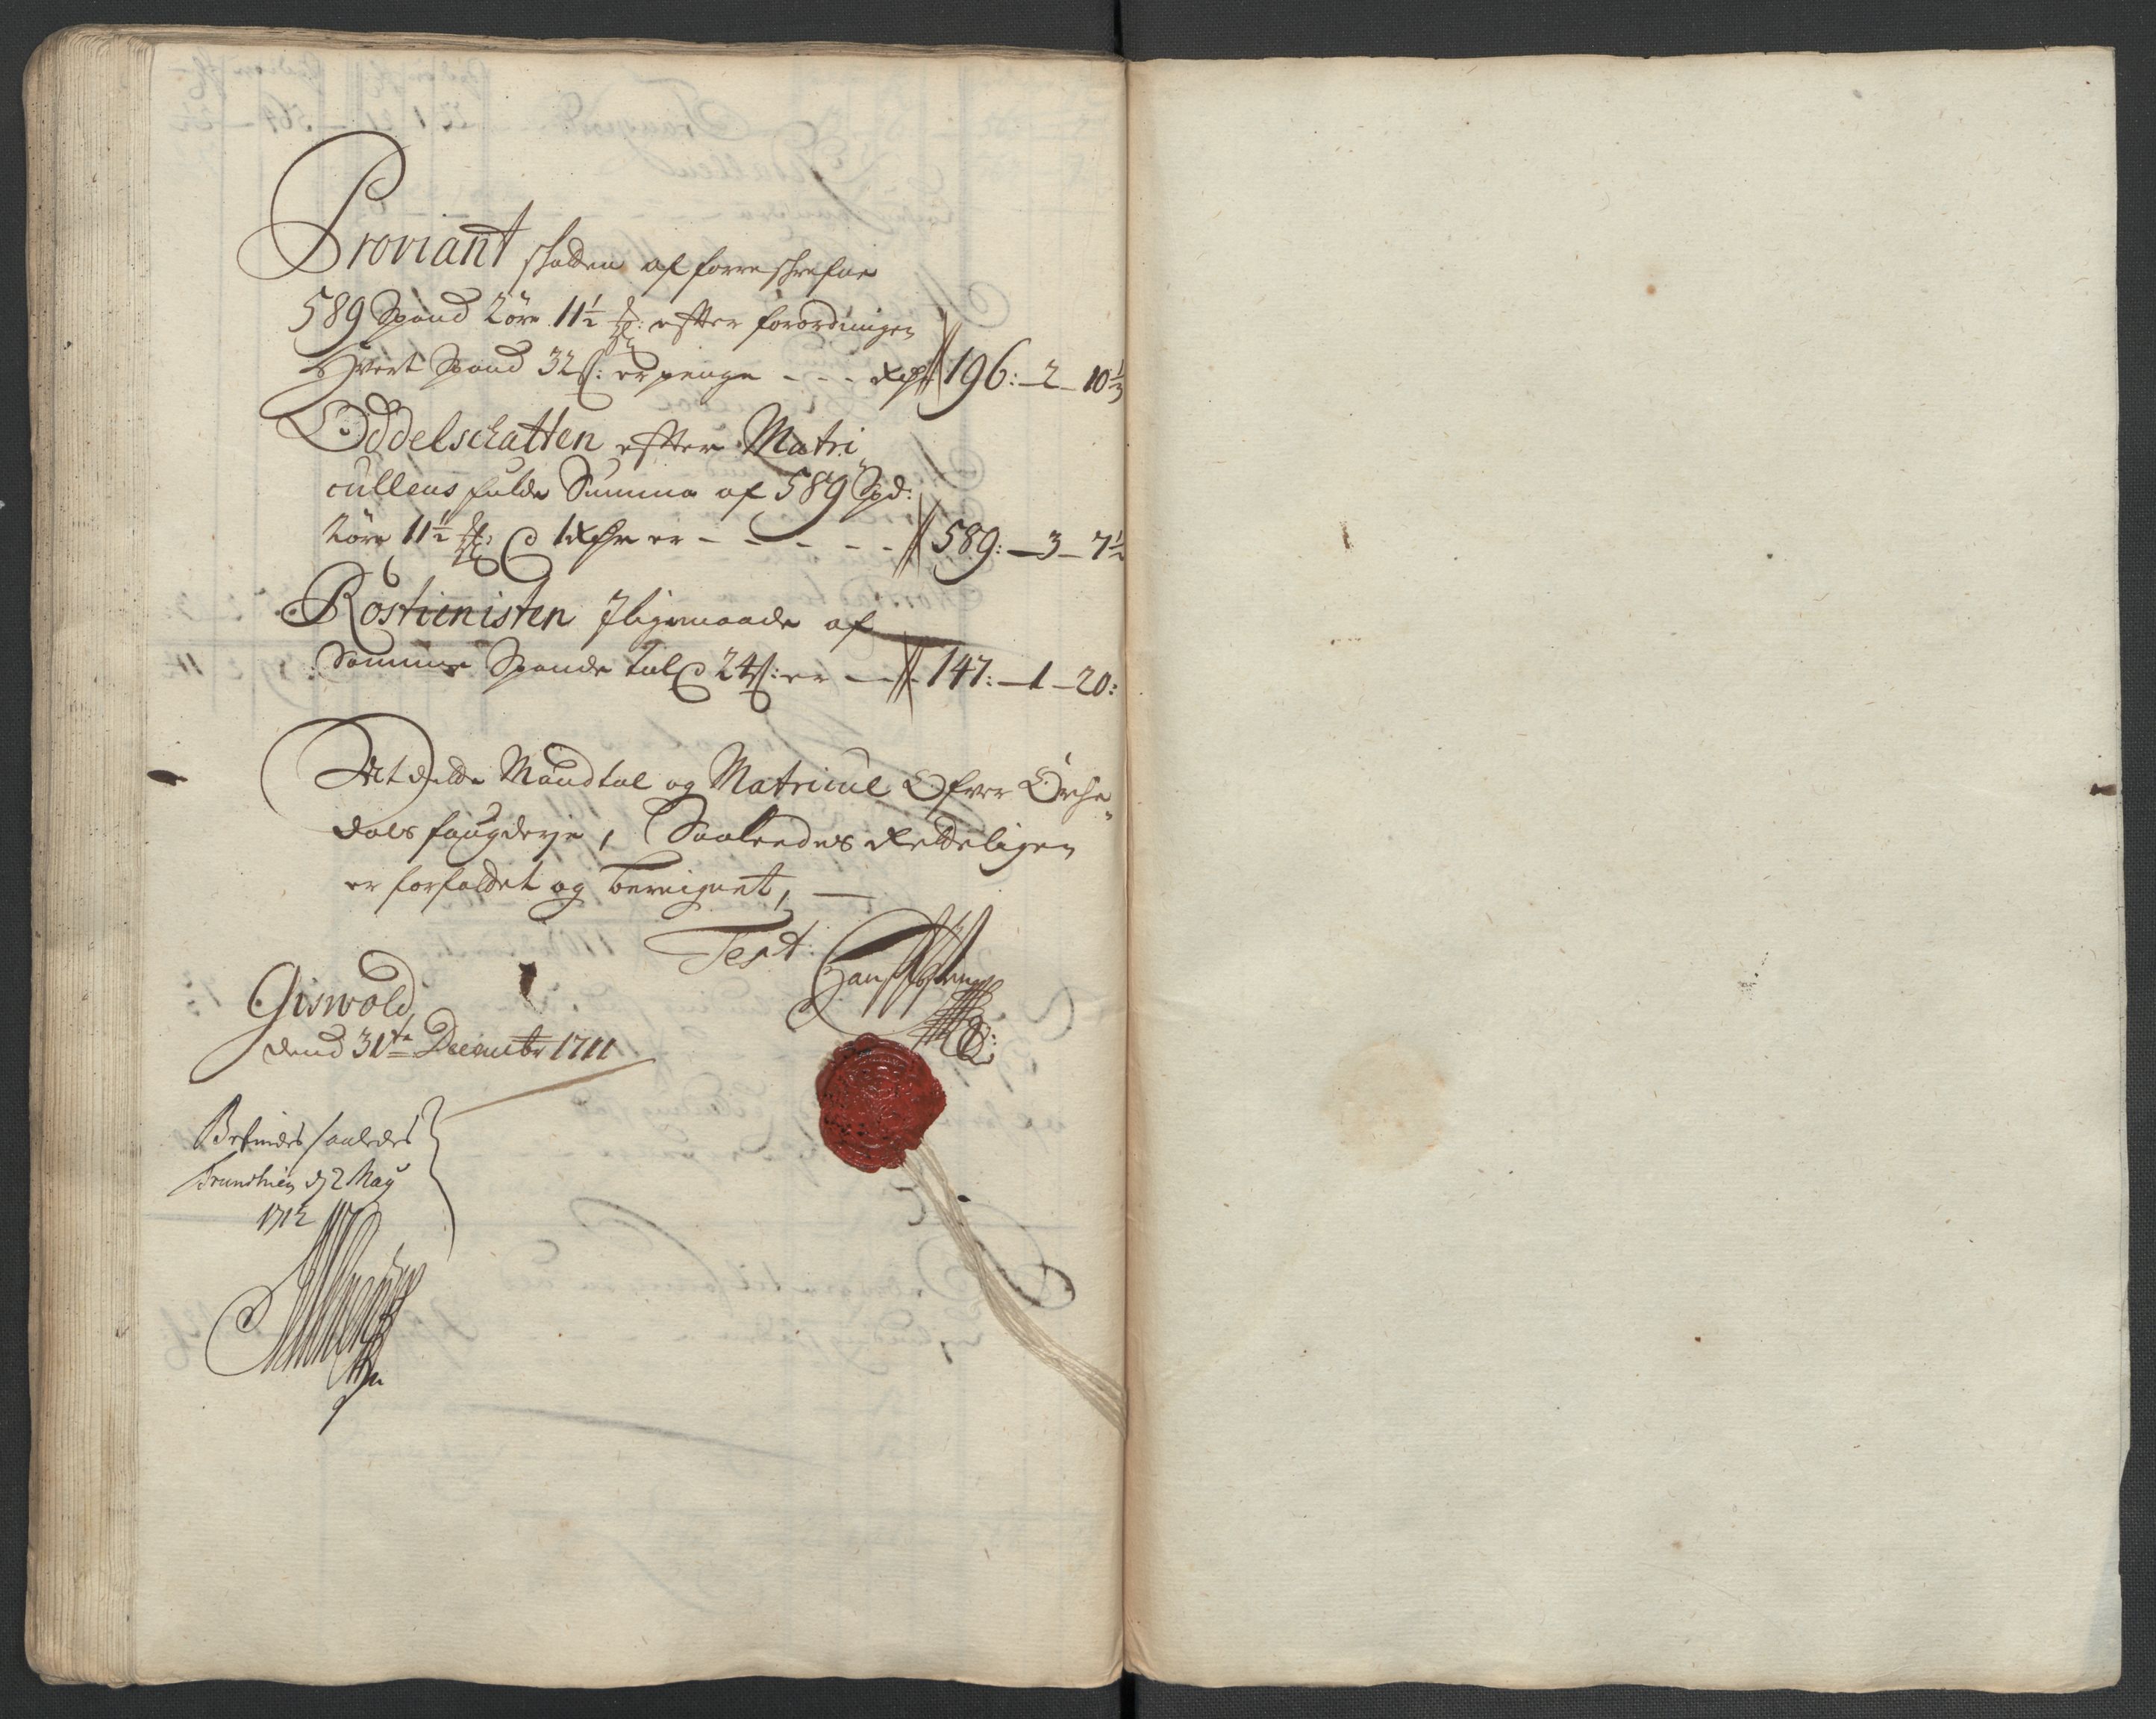 Proviant skatten af forreskrefne
589 Spand 2 öre 11½ : efter forordningen
Hvert Spand 32 ß: er penge - - - Rdr 196:-2-10⅓
Oddelschatten efter Matri
cullens fulde Summa af 589 Spd:
2 öre 11½ : @ 1 Rdr er - - - - - 589:-3-7½
Rostienisten Jligemaade af
Samme Spande tal @ 24 ß: er - - 147:-1-20:
At dette Mandtal og Matricul Ofver Orche
dals fougderje, Saaledes Retteligen
er forfattet og bereignet,
Test:
Giswold
dend 31te Decembr 1711
Befindes saaledes
Trundhiem d 2 May
1712